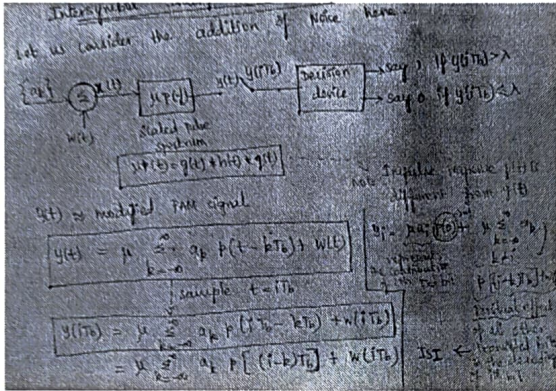 Intersymbol
Let us consider the addition of Noise here.
{ak} Σ x(t) μP(f) y(t) y(iTb) Decision device
say 1 if y(iTb)>λ
say 0 if y(iTb)≤λ
w(t)
scaled pulse
spectrum
μp(t)=g(t)*h(t)*q(t)
Note Impulse response p(t) is
different from g(t)
y(t) ≈ modified PAM signal
y(t) = μ Σ k=-∞ ∞ ak p(t-kTb) + W(t)
sample t=iTb
y(iTb) = μ Σ k=-∞ ∞ ak p(iTb-kTb) + w(iTb)
= μ Σ k=-∞ ∞ ak p[(i-k)Tb] + W(iTb)
μ Σ k=-∞ ∞ ak
represents
the contribution
of
p[(i-k)Tb]
Residual effect
of all other
transmitted bits
ISI ←